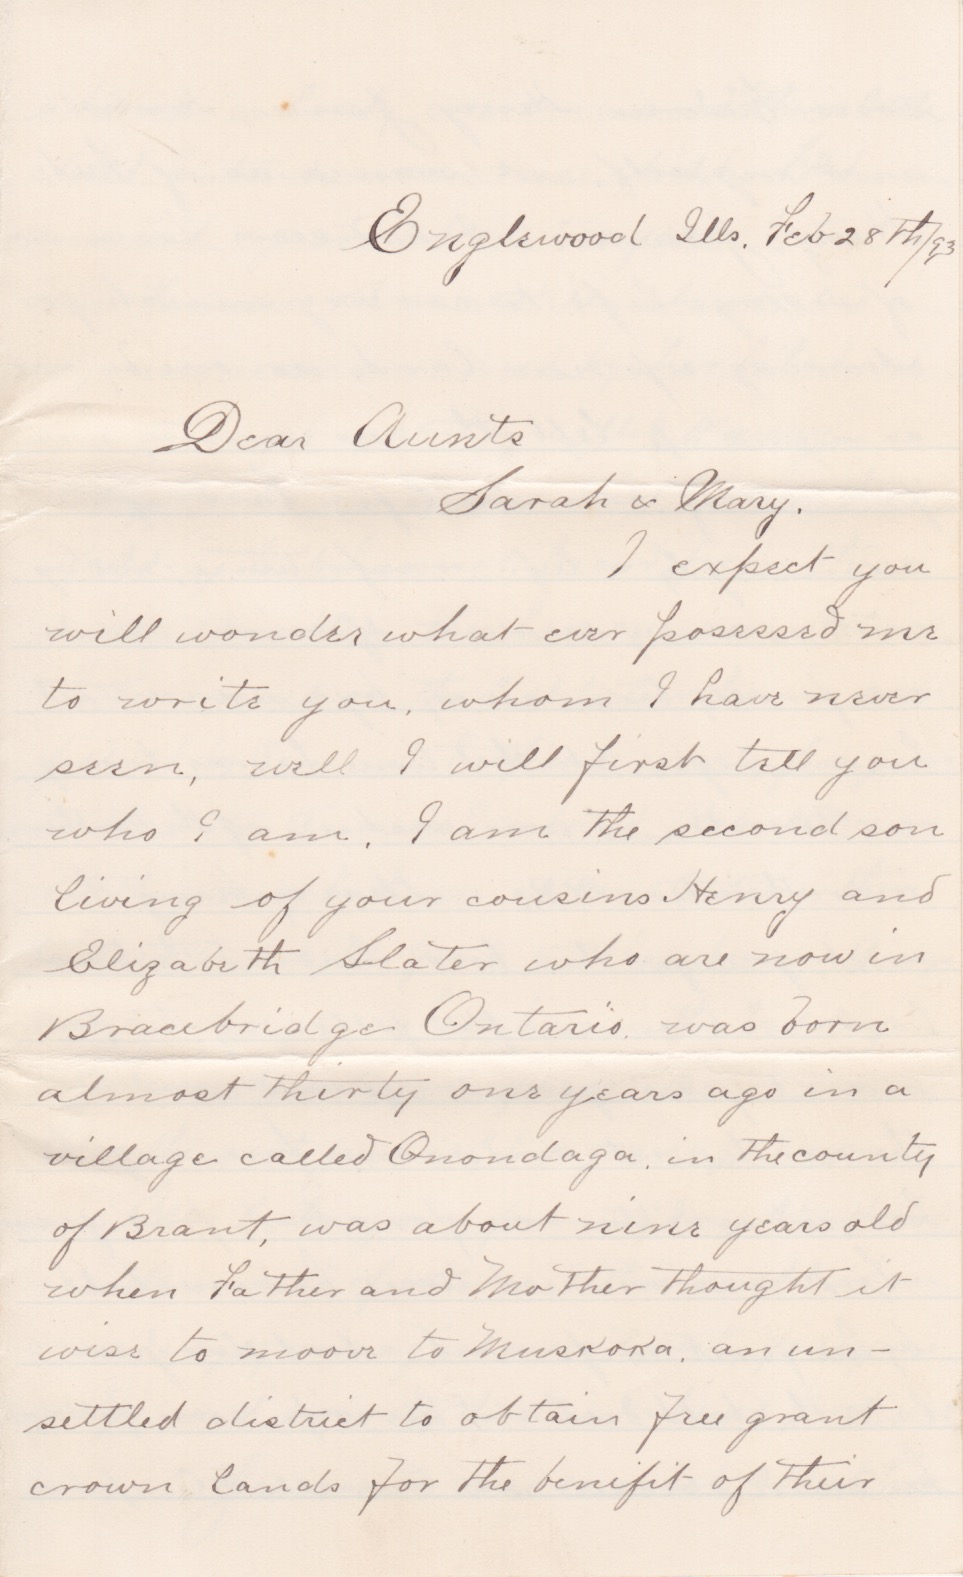 Englewood Ills. Feb 28th/93
Dear Aunts
Sarah & Mary.
I expect you
will wonder what ever posessed me
to write you, whom I have never
seen, well I will first tell you
who I am, I am the second son
living of your cousins Henry and
Elizabeth Slater who are now in
Bracebridge Ontario. was born
almost thirty one years ago in a
village called Onondaga, in the county
of Brant, was about nine years old
when Father and Mother thought it
wise to moove to Muskoka, an un-
settled district to obtain free grant
crown lands for the benifit of their